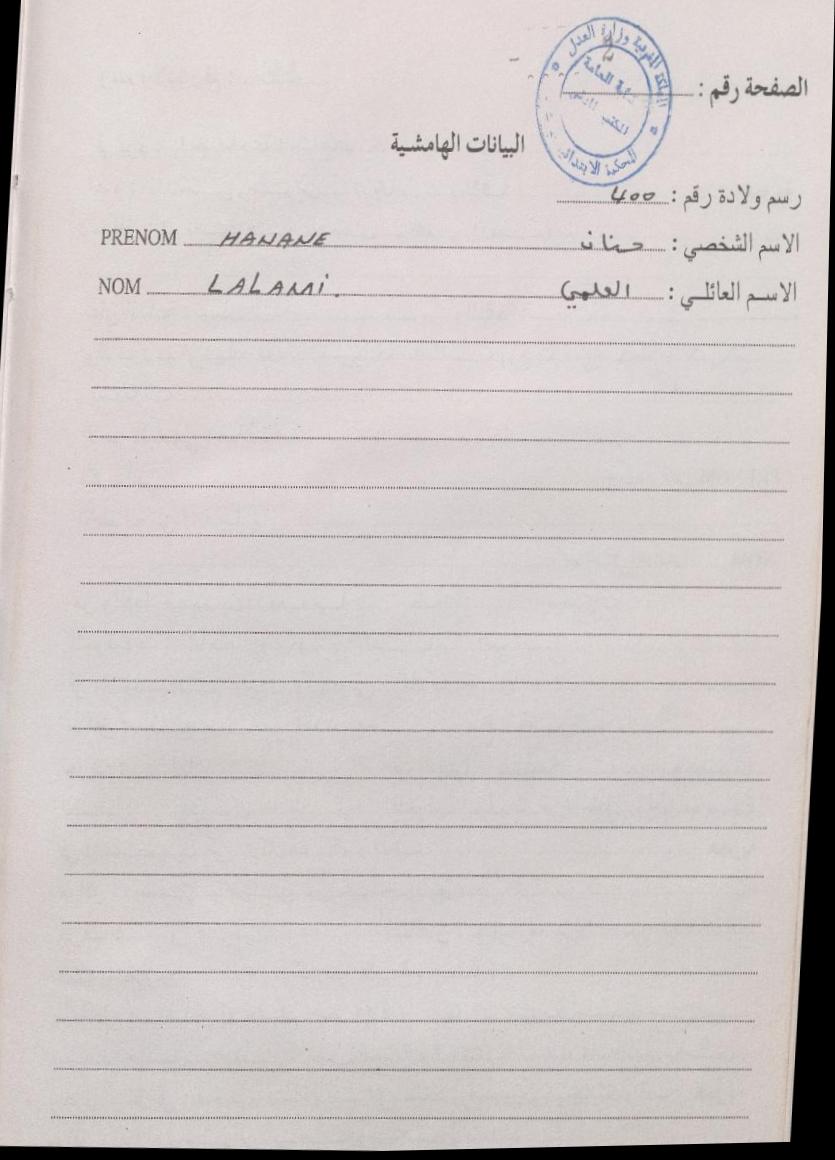 الصفحة رقم :
المملكة المغربية وزارة العدل
المحكمة الابتدائية
البيانات الهامشية
رسم ولادة رقم : 400
الاسم الشخصي : حنان PRENOM HANANE
الاسم العائلي : العلمي NOM LALAMI.